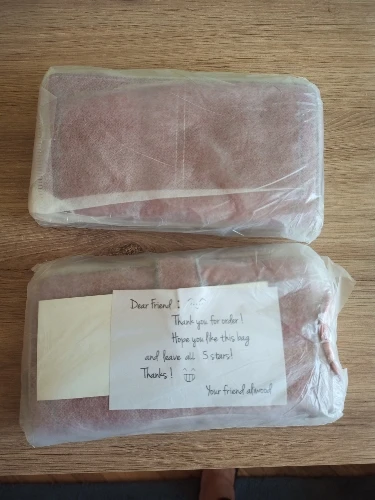 Dear Friend :
Thank you for order!
Hope you like this bag
and leave all 5 stars!
Thanks!
Your friend